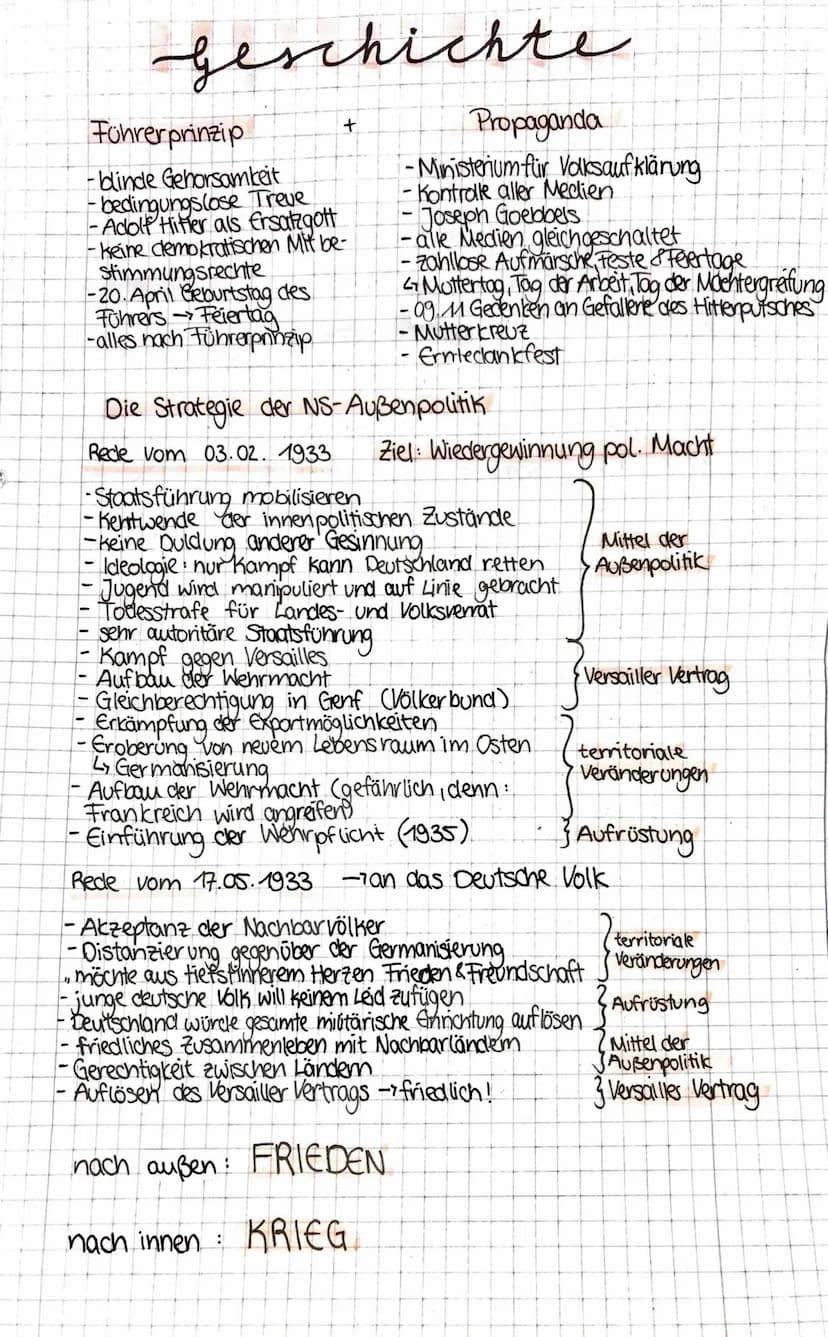 Geschichte
Führerprinzip + Propaganda
- blinde Gehorsamkeit
- bedingungslose Treue
- Adolf Hitler als Ersatzgott
- keine demokratischen Mitbe-
stimmungsrechte
- 20. April Geburtstag des
Führers → Feiertag
- alles nach Führerprinzip
- Ministerium für Volksaufklärung
- Kontrolle aller Medien
- Joseph Goebbels
- alle Medien gleichgeschaltet
- zahllose Aufmärsche, Feste & Feiertage
↳ Muttertag, Tag der Arbeit, Tag der Machtergreifung
- 09.11 Gedenken an Gefallene des Hitlerputsches
- Mutterkreuz
- Erntedankfest
Die Strategie der NS-Außenpolitik
Rede vom 03.02. 1933 Ziel: Wiedergewinnung pol. Macht
- Staatsführung mobilisieren
- Kehrtwende der innenpolitischen Zustände
- keine Duldung anderer Gesinnung
- Ideologie: nur Kampf kann Deutschland retten
- Jugend wird manipuliert und auf Linie gebracht
- Todesstrafe für Landes- und Volksverrat
- sehr autoritäre Staatsführung
Mittel der
Außenpolitik
- Kampf gegen Versailles
- Aufbau der Wehrmacht
- Gleichberechtigung in Genf (Völkerbund)
Versailler Vertrag
- Erkämpfung der Exportmöglichkeiten
- Eroberung von neuem Lebensraum im Osten
↳ Germanisierung
- Aufbau der Wehrmacht (gefährlich, denn:
Frankreich wird angreifen)
territoriale
Veränderungen
- Einführung der Wehrpflicht (1935)
Aufrüstung
Rede vom 17.05.1933 → an das Deutsche Volk
- Akzeptanz der Nachbarvölker
- Distanzierung gegenüber der Germanisierung
„möchte aus tiefstinnerem Herzen Frieden & Freundschaft
territoriale
Veränderungen
- junge deutsche Volk will keinem Leid zufügen
- Deutschland würde gesamte militärische Einrichtung auflösen
Aufrüstung
- friedliches Zusammenleben mit Nachbarländern
- Gerechtigkeit zwischen Ländern
Mittel der
Außenpolitik
- Auflösen des Versailler Vertrags → friedlich!
Versailles Vertrag
nach außen: FRIEDEN
nach innen : KRIEG